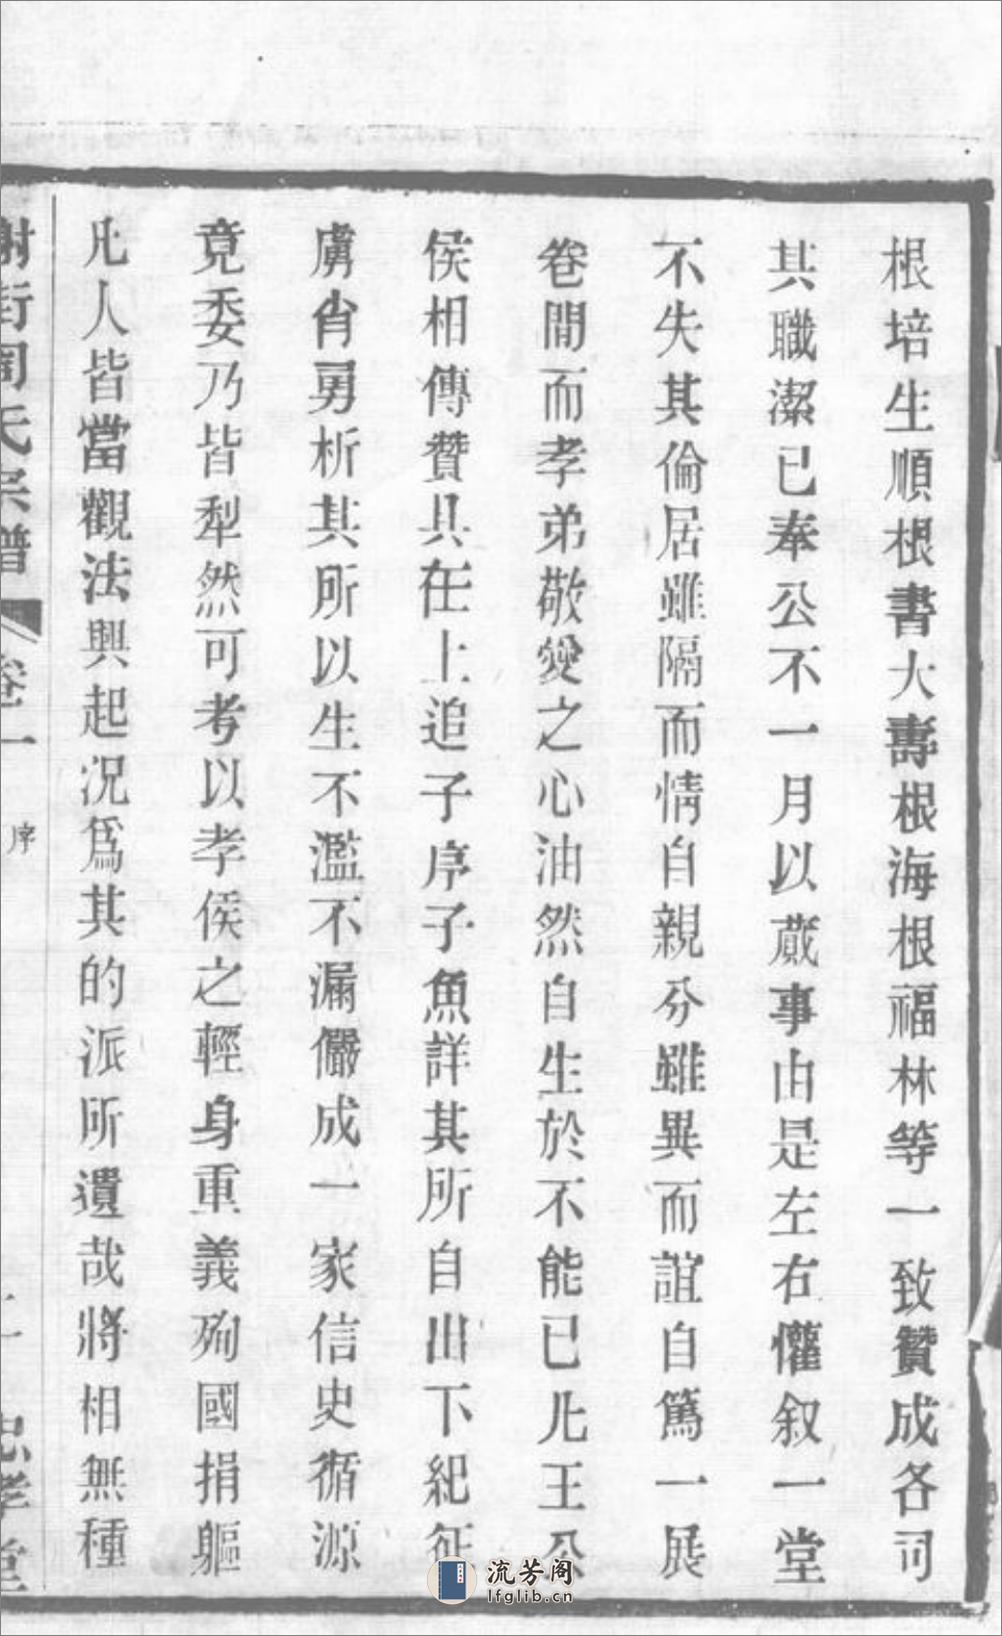 根培生順根書大壽根海根福林等一致贊成各司
其職潔已奉公不一月以蕆事由是左右懽叙一堂
不失其倫居雖隔而情自親分雖異而誼自篤一展
卷間而孝弟敬愛之心油然自生於不能已凡王公
侯相傳贊具在上追子序子魚詳其所自出下紀征
虜肖勇析其所以生不濫不漏儼成一家信史循源
竟委乃皆犁然可考以孝侯之輕身重義殉國捐軀
凡人皆當觀法興起况爲其的派所遺哉將相無種
周氏宗譜 卷一 序 忠孝堂
流芳阁
lfglib.cn